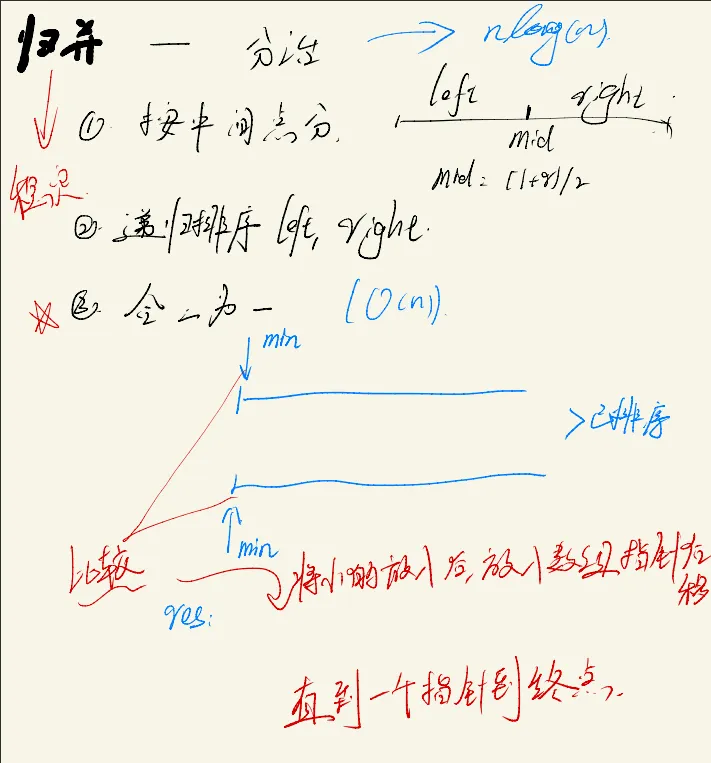 归并 — 分治 → nlog(n)
① 按中间点分.
left right
mid
mid = (l+r)/2
稳定
② 递归排序 left, right.
☆ ③ 合二为一 (O(n)).
min
>已排序
min
比较
将小的放入后, 放入数组指针后移
res:
直到一个指针到终点.